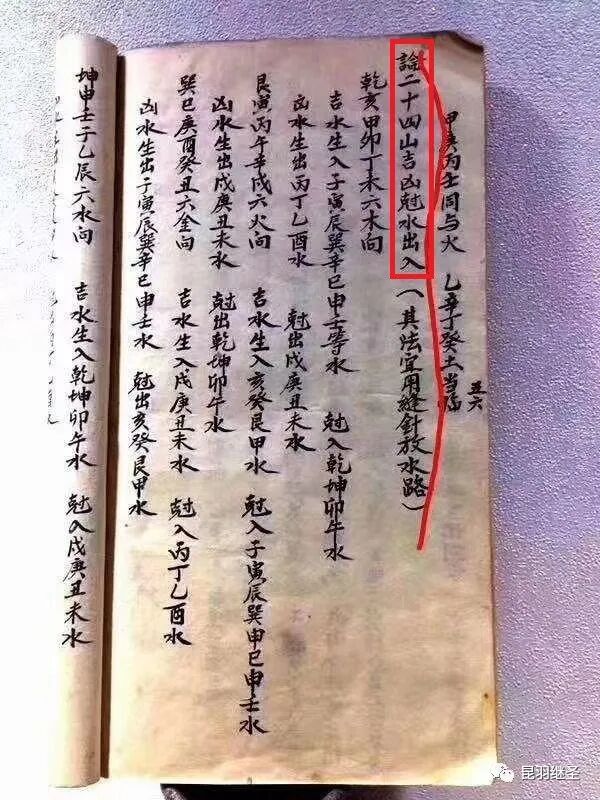 甲庚丙壬同与火 乙辛丁癸土当临
五六
論二十四山吉凶尅水出入（其法宜用縫針放水路）
乾亥甲卯丁未六木向
吉水生入子寅辰巽辛巳申壬等水 尅入乾坤卯午水
凶水生出丙丁乙酉水 尅出戌庚丑未水
艮寅丙午辛戌六火向 吉水生入亥癸艮甲水 尅入子寅辰巽申巳申壬水
凶水生出戌庚丑未水 尅出乾坤卯午水
巽巳庚酉癸丑六金向 吉水生入戌庚丑未水 尅入丙丁乙酉水
凶水生出子寅辰巽辛巳申壬水 尅出亥癸艮甲水
坤申壬子乙辰六水向 吉水生入乾坤卯午水 尅入戌庚丑未水
昆羽继圣